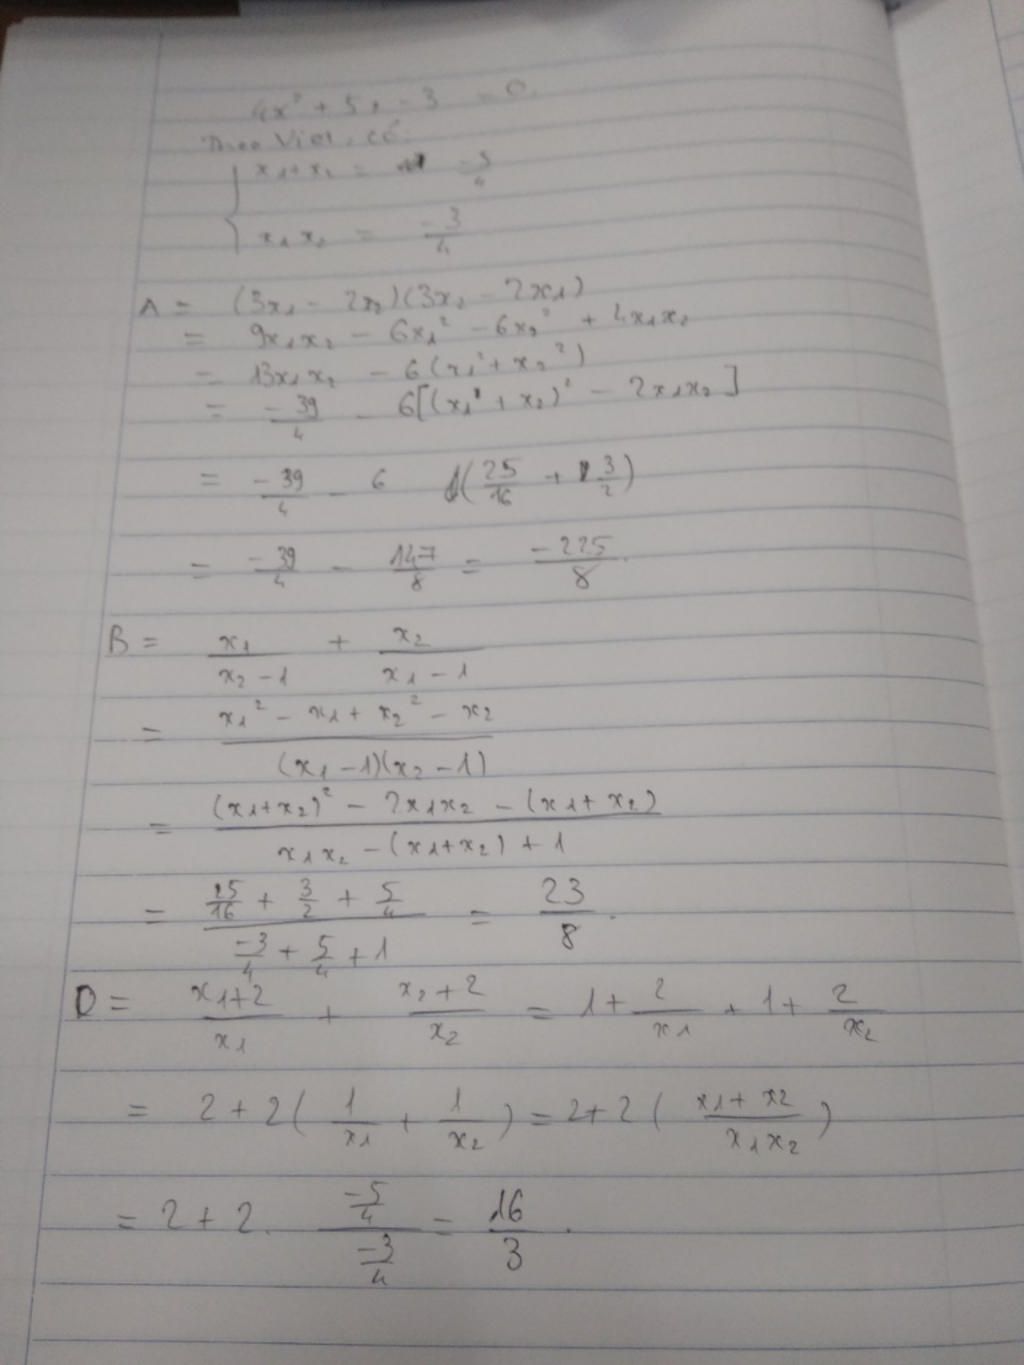 4x² + 5x - 3 = 0.
Theo Viet, có:
x1+x2 = -5/4
x1x2 = -3/4
A = (3x1 - 2x2)(3x2 - 2x1)
= 9x1x2 - 6x1² - 6x2² + 4x1x2
= 13x1x2 - 6(x1² + x2²)
= -39/4 - 6[(x1 + x2)² - 2x1x2]
= -39/4 - 6 (25/16 + 3/2)
= -39/4 - 147/8 = -225/8.
B = x1/(x2 - 1) + x2/(x1 - 1)
= (x1² - x1 + x2² - x2)/((x1 - 1)(x2 - 1))
= ((x1+x2)² - 2x1x2 - (x1+x2))/(x1x2 - (x1+x2) + 1)
= (25/16 + 3/2 + 5/4)/(-3/4 + 5/4 + 1) = 23/8.
D = (x1+2)/x1 + (x2+2)/x2 = 1 + 2/x1 + 1 + 2/x2
= 2 + 2(1/x1 + 1/x2) = 2+2((x1+x2)/(x1x2))
= 2 + 2. (-5/4)/(-3/4) = 16/3.